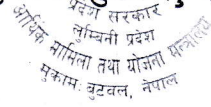 प्रदेश सरकार
लुम्बिनी प्रदेश
आर्थिक मामिला तथा योजना मन्त्रालय
मुकामः बुटवल, नेपाल